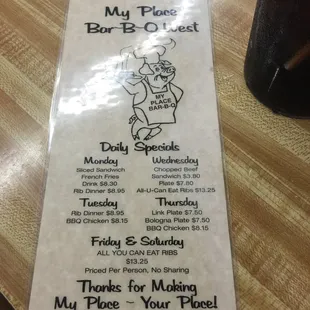 My Place
Bar-B-Q West
MY
PLACE
BAR-B-Q
Daily Specials
Monday
Sliced Sandwich
French Fries
Drink $8.30
Rib Dinner $8.95
Wednesday
Chopped Beef
Sandwich $3.80
Plate $7.80
All-U-Can Eat Ribs $13.25
Tuesday
Rib Dinner $8.95
BBQ Chicken $8.15
Thursday
Link Plate $7.50
Bologna Plate $7.50
BBQ Chicken $8.15
Friday & Saturday
ALL YOU CAN EAT RIBS
$13.25
Priced Per Person, No Sharing
Thanks for Making
My Place ~ Your Place!